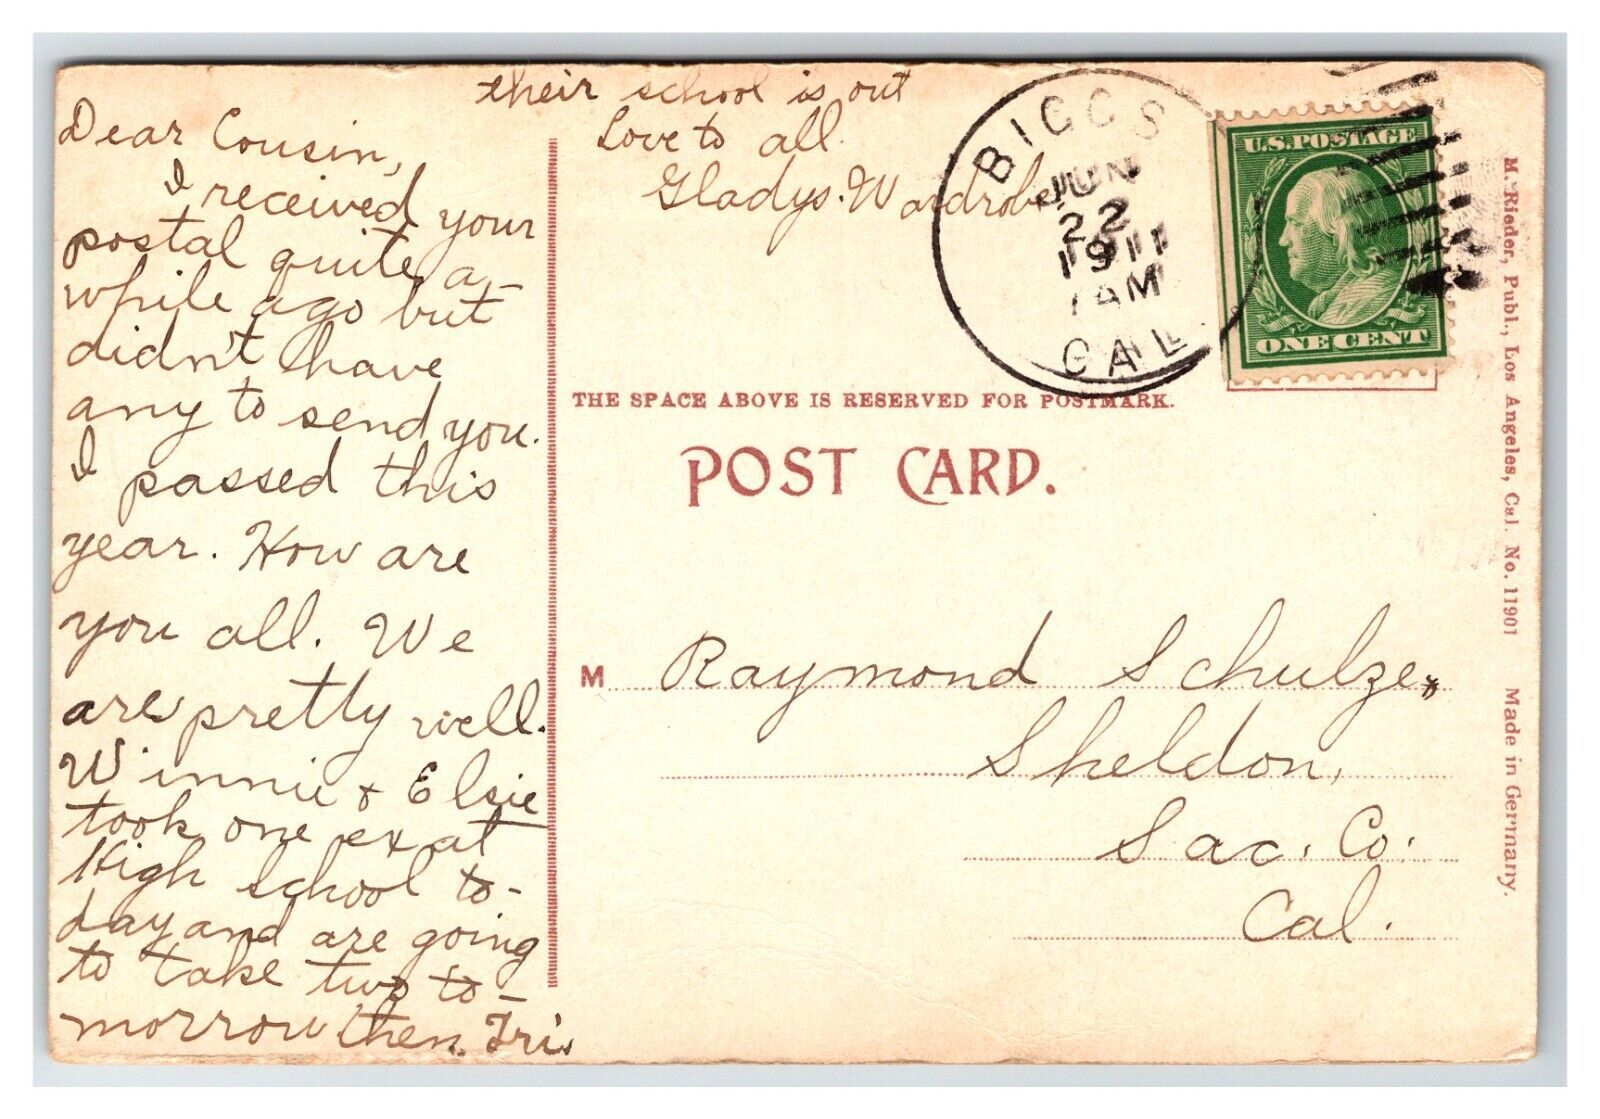 Dear Cousin,
I received your
postal quite a-
while ago but
didn't have
any to send you.
I passed this
year. How are
you all. We
are pretty well.
Winnie & Elsie
took one ex at
High School to-
day and are going
to take two to-
morrow then Fri.
their school is out
Love to all.
Gladys. Wardrobe
BIGGS
JUN
22
1911
7AM
CAL
U.S. POSTAGE
ONE CENT
THE SPACE ABOVE IS RESERVED FOR POSTMARK.
POST CARD.
M Raymond Schulze,
Sheldon,
Sac. Co.
Cal.
M. Rieder, Publ., Los Angeles, Cal. No. 11901 Made in Germany.